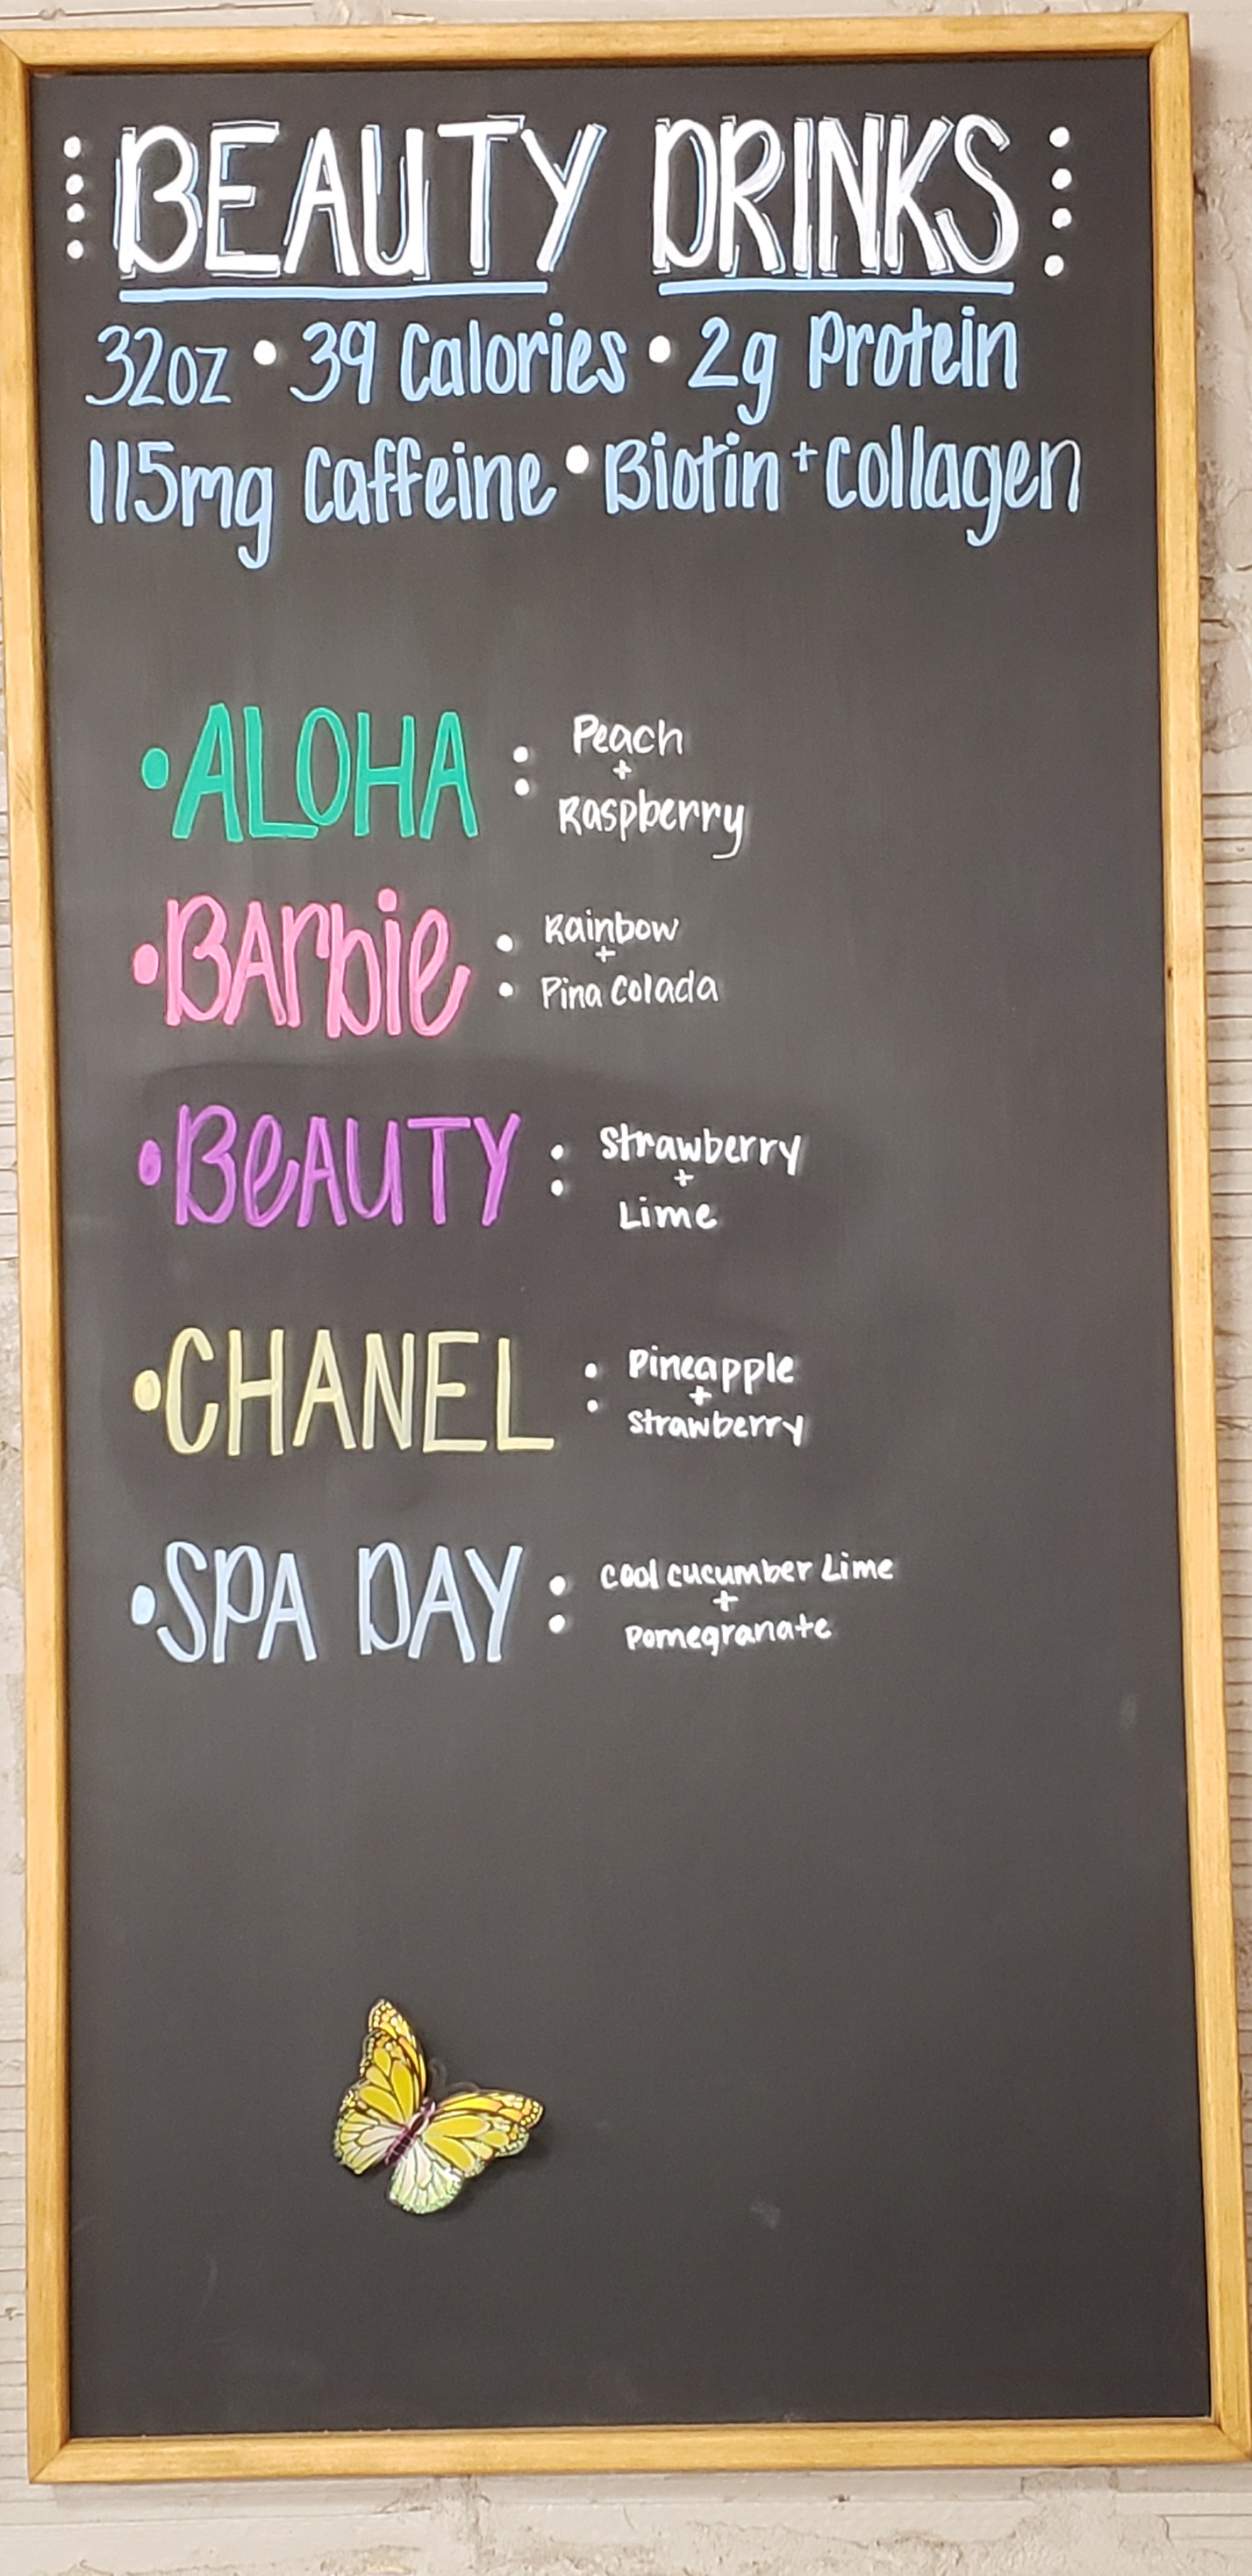 BEAUTY DRINKS
32oz • 39 Calories • 2g Protein
115mg Caffeine • Biotin + Collagen
• ALOHA : Peach
+
Raspberry
• BArbie : Rainbow
+
Pina Colada
• BeAUTY : Strawberry
+
Lime
• CHANEL : Pineapple
+
Strawberry
• SPA DAY : Cool Cucumber Lime
+
Pomegranate